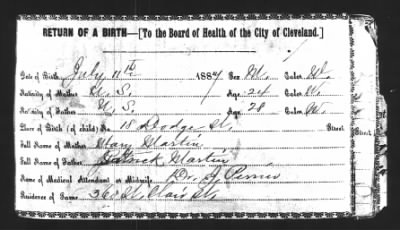 RETURN OF A BIRTH—[To the Board of Health of the City of Cleveland.]
Date of Birth, July 11th 1887 Sex M. Color W.
Nativity of Mother U. S. Age, 24 Color W.
Nativity of Father U. S. Age, 28 Color W.
Place of Birth (of child) No. 18 Dodge St. Street
Full Name of Mother Mary Martin
Full Name of Father Patrick Martin
Name of Medical Attendant or Midwife, Dr. J.
Residence of Same 360 St Clair St.